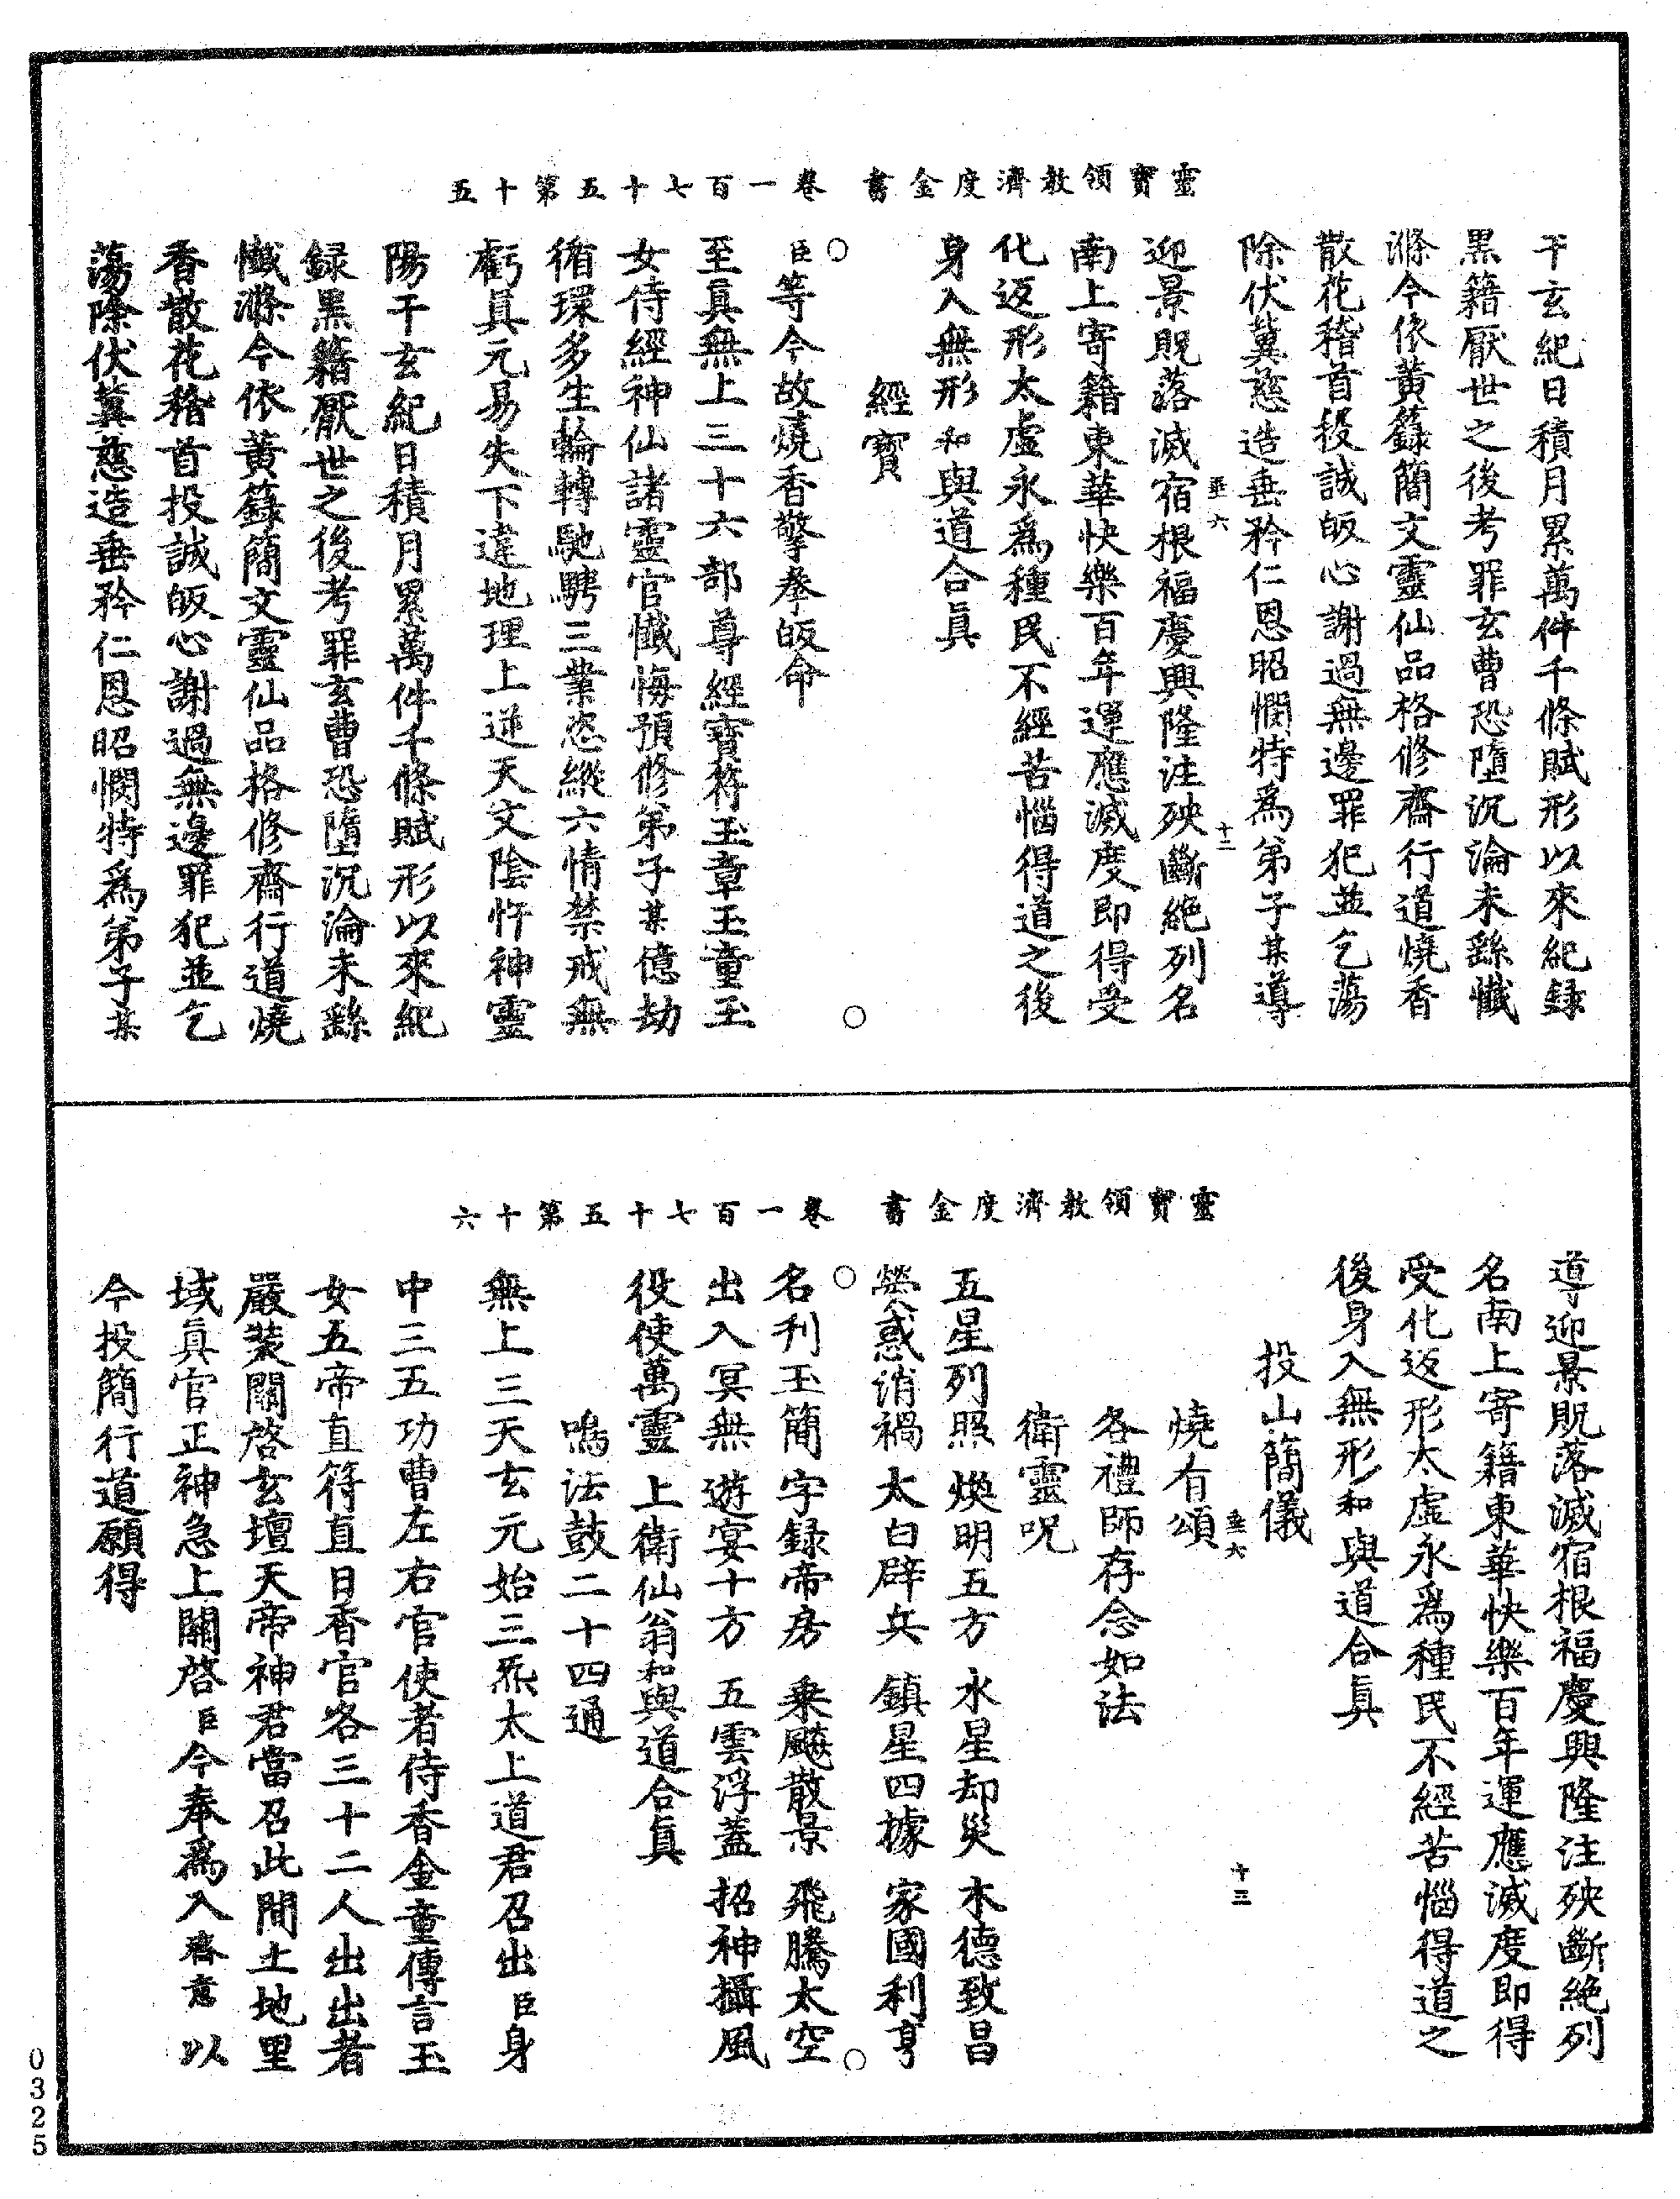 靈寶領教濟度金書　卷一百七十五第十五
干玄紀日積月累萬件千條賦形以來紀録
黒籍厭世之後考罪玄曹恐墮沉淪未繇懺
滌今依黃籙簡文靈仙品格修齋行道燒香
散花稽首投誠皈心謝過無邊罪犯並乞蕩
除伏冀慈造垂矜仁恩昭憫特爲弟子某導
垂六　十二
迎景貺落滅宿根福慶興隆注殃斷絶列名
南上寄籍東華快樂百年運應滅度即得受
化返形太虛永爲種民不經苦惱得道之後
身入無形和與道合眞
經寶
○臣等今故燒香擎拳皈命○
至眞無上三十六部尊經寶符玉章玉童玉
女侍經神仙諸靈官懺悔預修弟子某億劫
循環多生輪轉馳騁三業恣縱六情禁戒無
虧眞元易失下違地理上逆天文陰忤神靈
陽干玄紀日積月累萬件千條賦形以來紀
録黑籍厭世之後考罪玄曹恐墮沉淪未繇
懺滌今依黃籙簡文靈仙品格修齋行道燒
香散花稽首投誠皈心謝過無邊罪犯並乞
蕩除伏冀慈造垂矜仁恩昭憫特爲弟子某
靈寶領教濟度金書　卷一百七十五第十六
導迎景貺落滅宿根福慶興隆注殃斷絶列
名南上寄籍東華快樂百年運應滅度即得
受化返形太虛永爲種民不經苦惱得道之
後身入無形和與道合眞
投山簡儀
垂六　十三
燒有頌
各禮師存念如法
衛靈呪
五星列照　煥明五方　水星却災　木德致昌
熒惑消禍　太白辟兵　鎮星四據　家國利亨
○名刋玉簡　字録帝房　乗飈散景　飛騰太空○
出入冥無　遊宴十方　五雲浮蓋　招神攝風
役使萬靈　上衛仙翁和與道合眞
鳴法鼓二十四通
無上三天玄元始三炁太上道君召出臣身
中三五功曹左右官使者侍香金童傳言玉
女五帝直符直日香官各三十二人出出者
嚴裝關啓玄壇天帝神君當召此間土地里
域眞官正神急上關啓臣今奉爲入齋意以
今投簡行道願得
0325